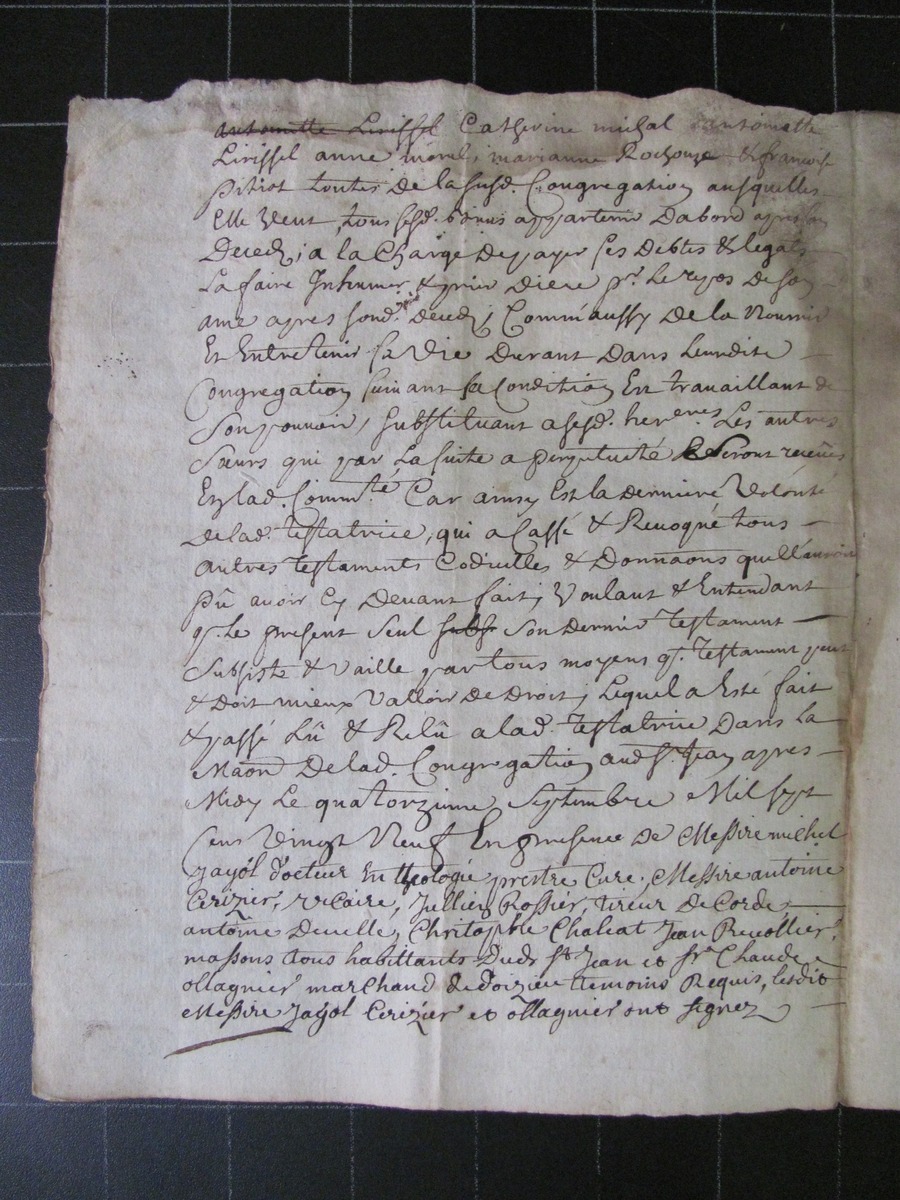 antoinette Lirissel Catherine michal antoinette
Lirissel anne morel, marianne Rochouze & francoise
pitiot toutes de la susd. Congregation ausquelles
Elle veut tous sesd. biens appartenir dabord apres son
Deceds, a la Charge de payer ses debtes & legats
La faire Inhumer & prier dieu pr. le repos de son
ame apres sond. deceds, Comm'aussy de la nourrir
Et Entretenir sa vie durant dans leurdite
Congregation suivant sa condition En travaillant de
son pouvoir, substituant a sesd. herres. Les autres
sœurs qui par la suite a perpetuité seront receües
En lad. Commté. Car ainsy Est la derniere volonté
de lad. testatrice, qui a Cassé & Revoqué tous
autres testaments Codicilles & Donnaons quell'auroit
pû avoir Cy devant fait, Voulant & Entendant
q. le present seul subs son dernier testament
subsiste & vaille par tous moyens q. testament peut
& doit mieux valloir de droit, lequel a Esté fait
& passé Lû & Relû a lad. testatrice dans la
maon de lad. Congregation aud st Jean apres
Midy le quatorzieme septembre Mil sept
cens vingt neuf En presence de Messire michel
Jayol docteur En theologie prestre Curé, Messire antoine
Cerizier, vicaire, Jullien Rossier, tireur de Corde,
antoine deville, Christophle Chaleat Jean Revollier,
massons tous habittants dudt st Jean et sr Chaude
ollagnier marchand de doizieu temoins Requis, lesdit
Messire Jayol Cerizier et ollagnier ont signez